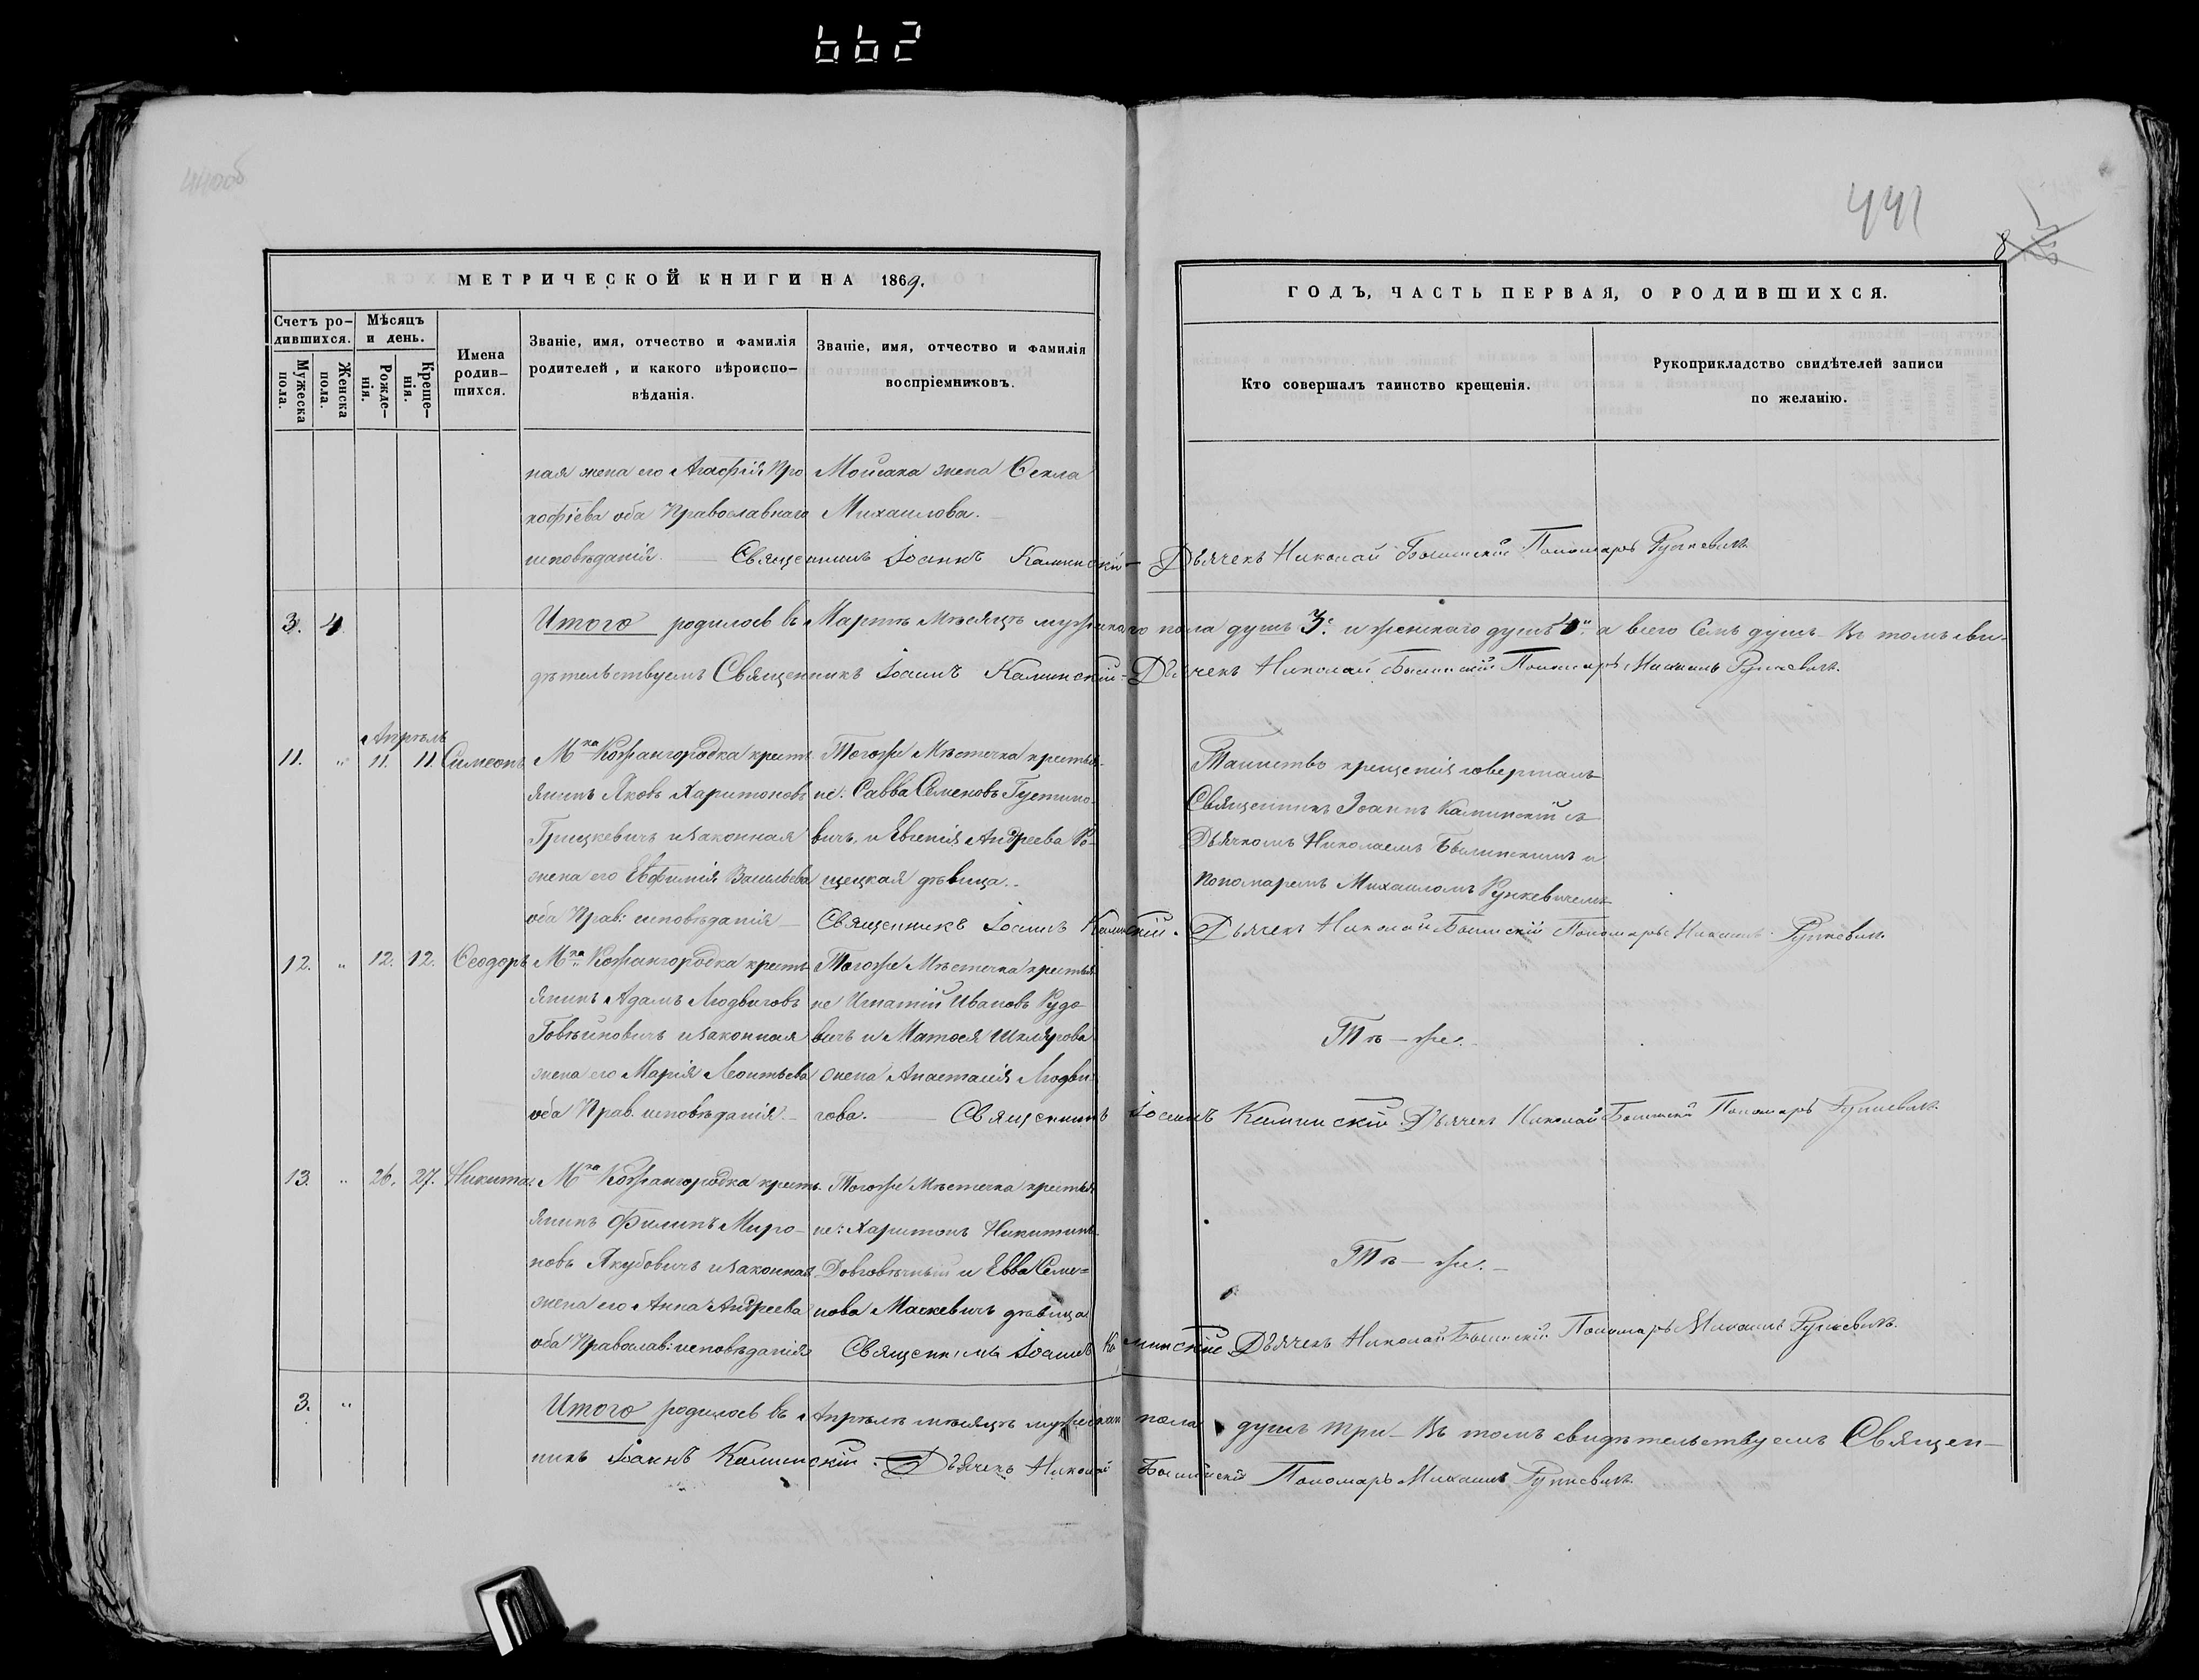 662
440об
441
8
МЕТРИЧЕСКОЙ КНИГИ НА 1869.
Счетъ ро-
дившихся.
Мужеска
пола.
Женска
пола.
Мѣсяцъ
и день.
Рожде-
нія.
Креще-
нія.
Имена
родив-
шихся.
Званіе, имя, отчество и фамилія
родителей, и какого вѣроиспо-
вѣданія.
Званіе, имя, отчество и фамилія
воспріемниковъ.
ГОДЪ, ЧАСТЬ ПЕРВАЯ, О РОДИВШИХСЯ.
Кто совершалъ таинство крещенія.
Рукоприкладство свидѣтелей записи
по желанію.
ная жена его Агафія Про
кофіева оба Православнаго
исповѣданія.
Мойсака жена Ѳекла
Михаилова.
Священникъ Іоаннъ Калинскій - Дьячекъ Николай Былинскій Пономарь Рункевичъ.
3. 4. Итого родилось въ Мартѣ мѣсяцѣ мужескаго пола душъ 3. и женскаго душъ 4. а всего Семь душъ - Въ томъ сви-
дѣтельствуемъ Священникъ Іоаннъ Калинскій - Дьячекъ Николай Былинскій Пономарь Михаилъ Рункевичъ.
Апрѣль
11. " 11. 11. Симеонъ.
М.ка Кожангородка кресть-
янинъ Яковъ Харитоновъ
Грицкевичъ и законная
жена его Евфимія Васильева
оба Прав: исповѣданія
Тогоже Мѣстечка крестья-
не: Савва Семеновъ Густино-
вичъ, и Евгенія Андреева Ро-
щецкая дѣвица.
Таинство крещенія совершалъ
Священникъ Іоаннъ Калинскій съ
Дьячкомъ Николаемъ Былинскимъ и
Пономаремъ Михаиломъ Рункевичемъ
Священникъ Іоаннъ Калинскій. Дьячекъ Николай Былинскій Пономарь Михаилъ Рункевичъ.
12. " 12. 12. Ѳеодоръ
М.ка Кожангородка кресть-
янинъ Адамъ Людвиговъ
Говѣйновичъ и законная
жена его Марія Леонтьева
оба Прав. исповѣданія.
Тогоже Мѣстечка крестья
не Игнатій Ивановъ Рудо
вичъ и Матѳея Шклярова
жена Анастасія Людви-
гова.
Тѣ-же.
Священникъ Іоаннъ Калинскій Дьячекъ Николай Былинскій Пономарь Рункевичъ.
13. " 26. 27. Никита.
М.ка Кожангородка кресть.
янинъ Филипъ Миро-
новъ Якубовичъ и законная
жена его Анна Андреева
оба Православ: исповѣданія
Тогоже Мѣстечка крестья
не: Харитонъ Никитинъ
Довговѣчный и Евва Семе-
нова Маскевичъ дѣвица
Тѣ-же.
Священникъ Іоаннъ Калинскій Дьячекъ Николай Былинскій Пономарь Михаилъ Рункевичъ.
3. " Итого родилось въ Апрѣлѣ мѣсяцѣ мужескаго пола душъ три - Въ томъ свидѣтельствуемъ Священ-
никъ Іоаннъ Калинскій. Дьячекъ Николай Былинскій Пономарь Михаилъ Рункевичъ.